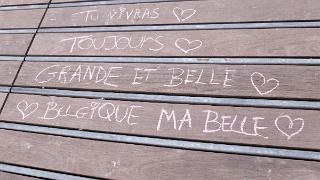 TU VIVRAS ♡
TOUJOURS ♡
GRANDE ET BELLE ♡
♡ BELGIQUE MA BELLE ♡